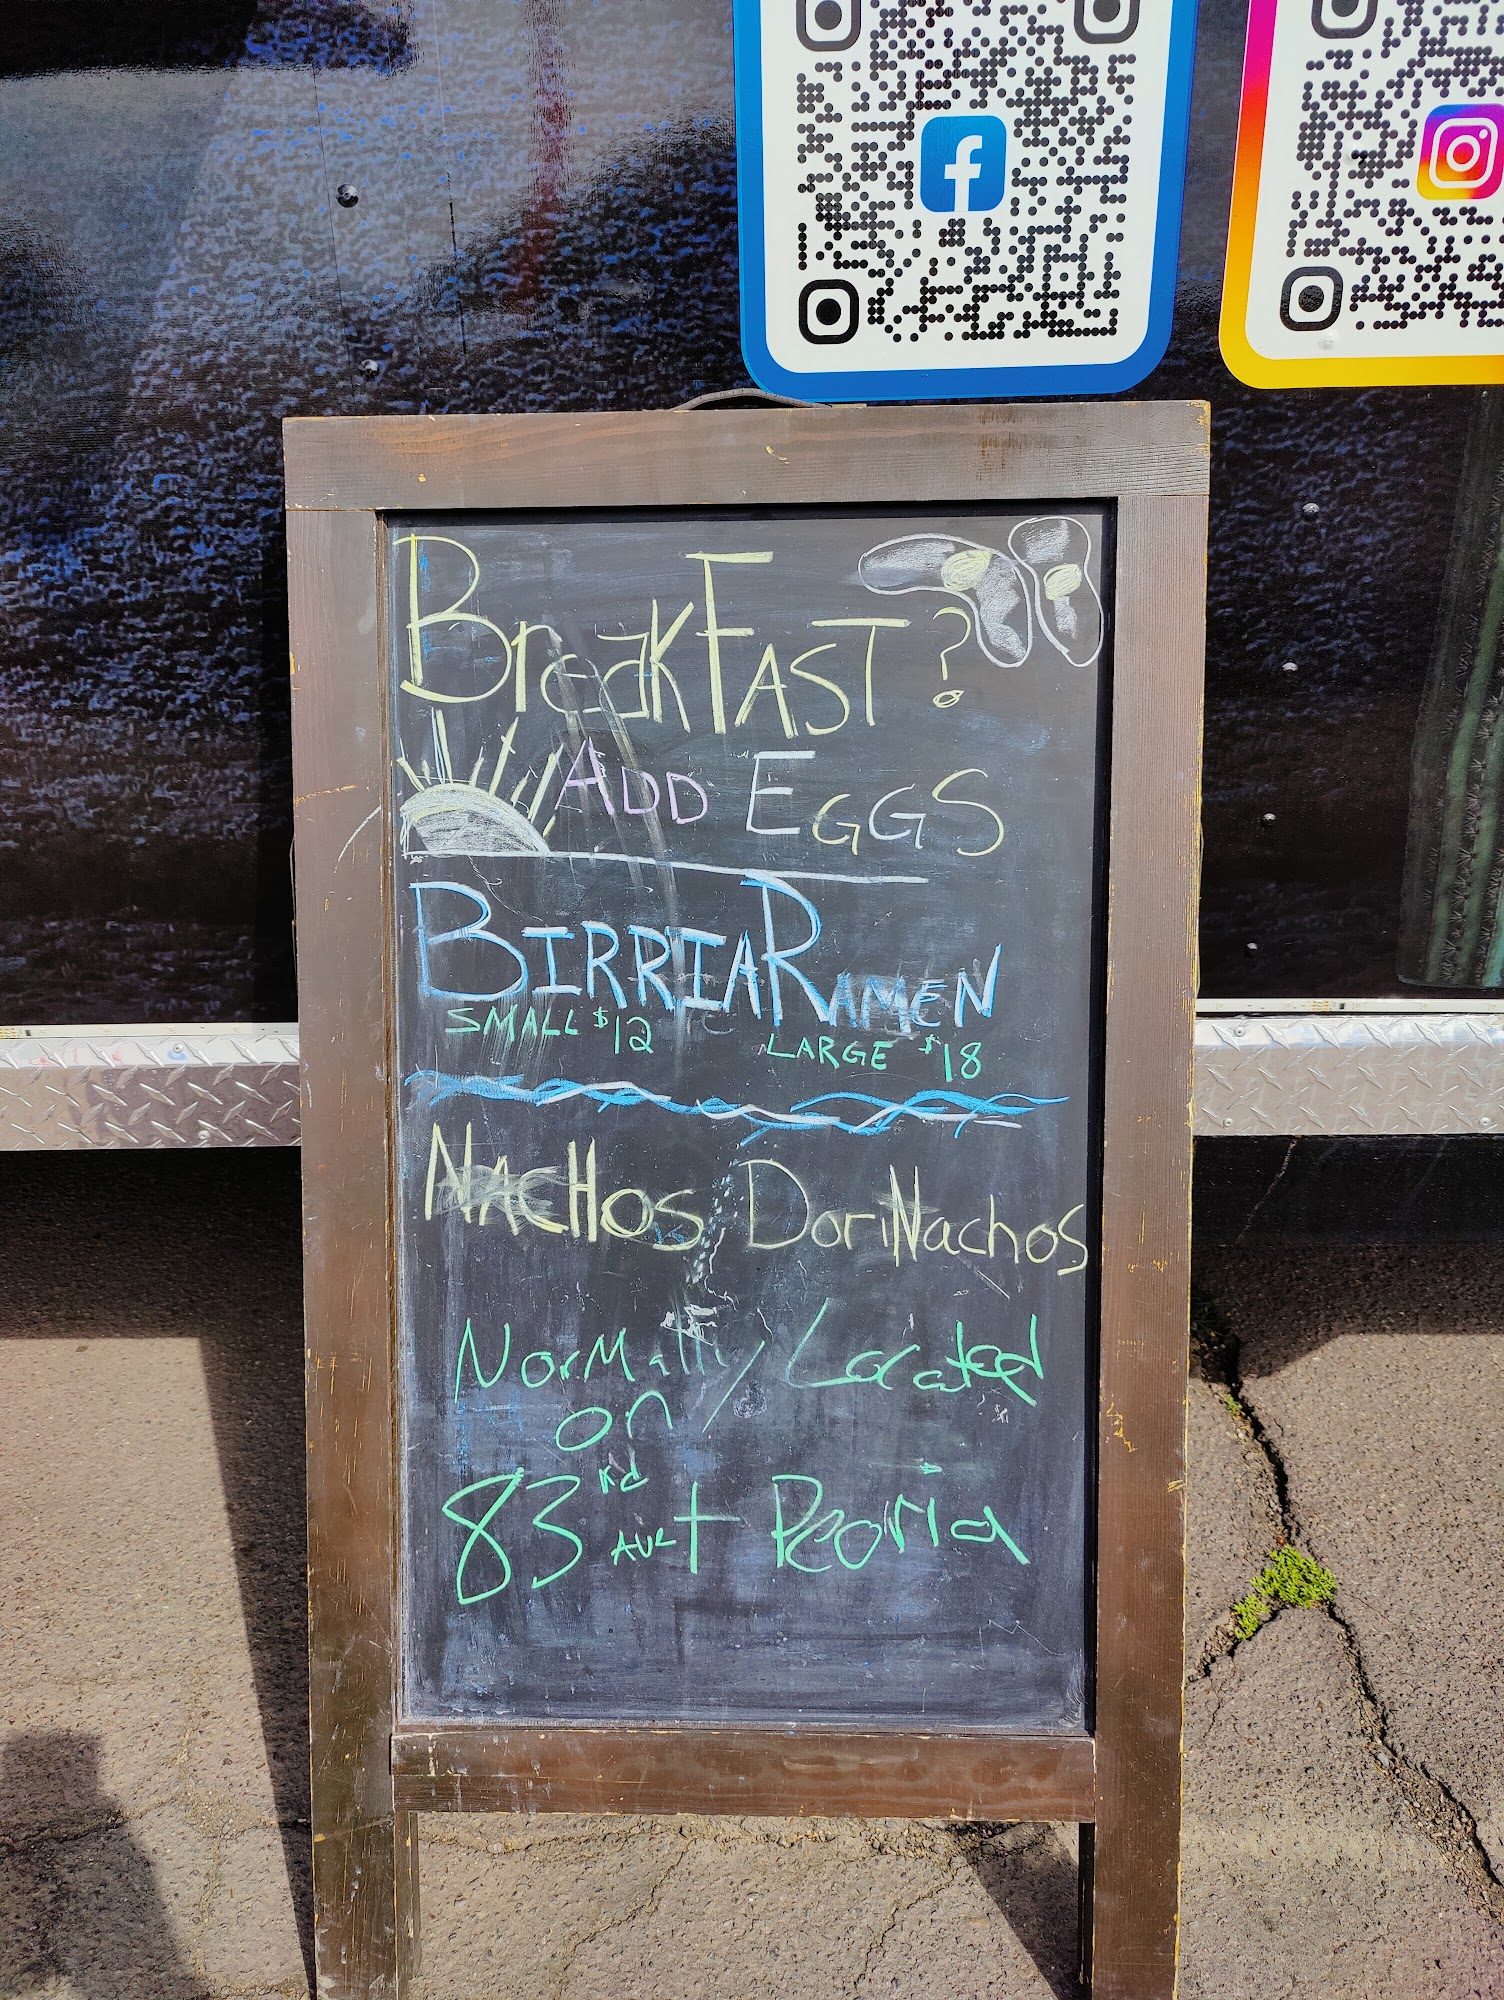 BreakFAST ?
ADD EGGS
BIRRIA RAMEN
SMALL $12 LARGE $18
NACHOS DoriNachos
NorMally Located
on
83rd Ave + Peoria